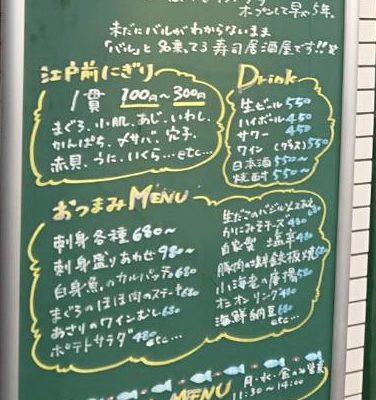 オープンして早や5年。
未だにバルがわからないまま
「バル」と名乗ってる寿司居酒屋です!!
江戸前にぎり
1貫 100円~300円
まぐろ、小肌、あじ、いわし、
かんぱち、〆サバ、穴子、
赤貝、うに、いくら…etc…
Drink
生ビール 550
ハイボール 450
サワー 450
ワイン(グラス) 550
日本酒 550~
焼酎 550~
おつまみMENU
刺身各種 680~
刺身盛りあわせ 980~
白身魚のカルパッチョ 680
まぐろのほほ肉のステーキ 680
あさりのワインむし 680
ポテトサラダ 480
etc…
生だこのバジル
かにみそチーズ 480
自家製塩辛 480
豚肉の鉄板焼 680
小海老の唐揚 580
オニオンリング 480
海鮮納豆 680
etc…
MENU
月・水・金のみ営業
11:30~14:00